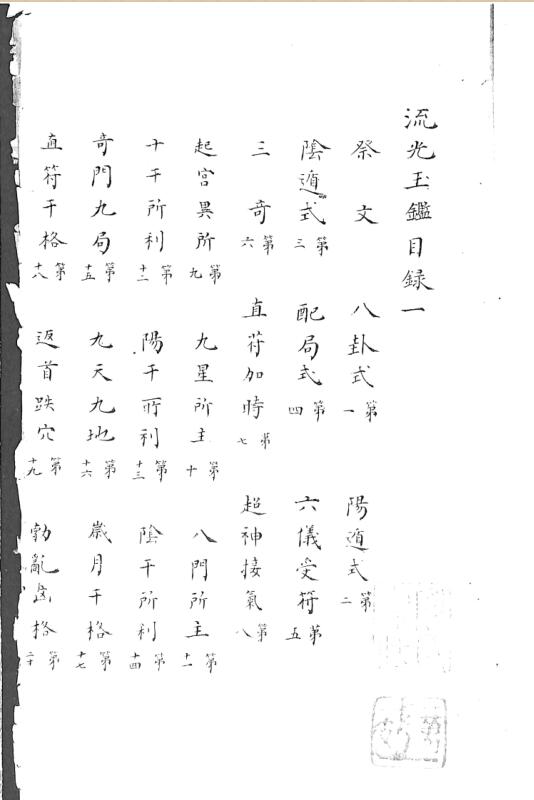 流光玉鑑目録一
祭文 八卦式第一 陽遁式第二
陰遁式第三 配局式第四 六儀受符第五
三奇第六 直符加時第七 超神接氣第八
起宮異所第九 九星所主第十 八門所主第十一
十干所利第十二 陽干所利第十三 陰干所利第十四
奇門九局第十五 九天九地第十六 歲月干格第十七
直符干格第十八 返首跌穴第十九 勃亂凶格第二十